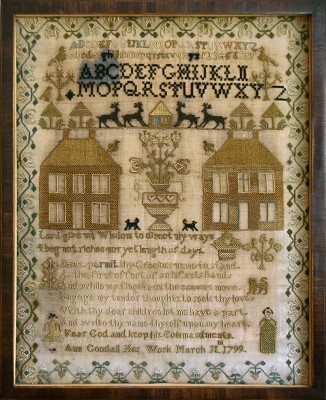 ABCDEFGHIJKLMNOPQRSTUVWXYZ
ABCDEFGHIJKLN
MOPQRSTUVWXYZ
Lord give me Wisdom to direct my ways
I beg not riches nor yet length of days.
Jesus permit thy Gracious name to stand
As the first effort of an infants hand
And while my fingers on the canvas move
Engage my tender thoughts to seek thy love
With thy dear children let me have a part
And write thy name thyself upon my heart
Fear God and keep his Commandments.
Ann Goodall Her Work March 1799